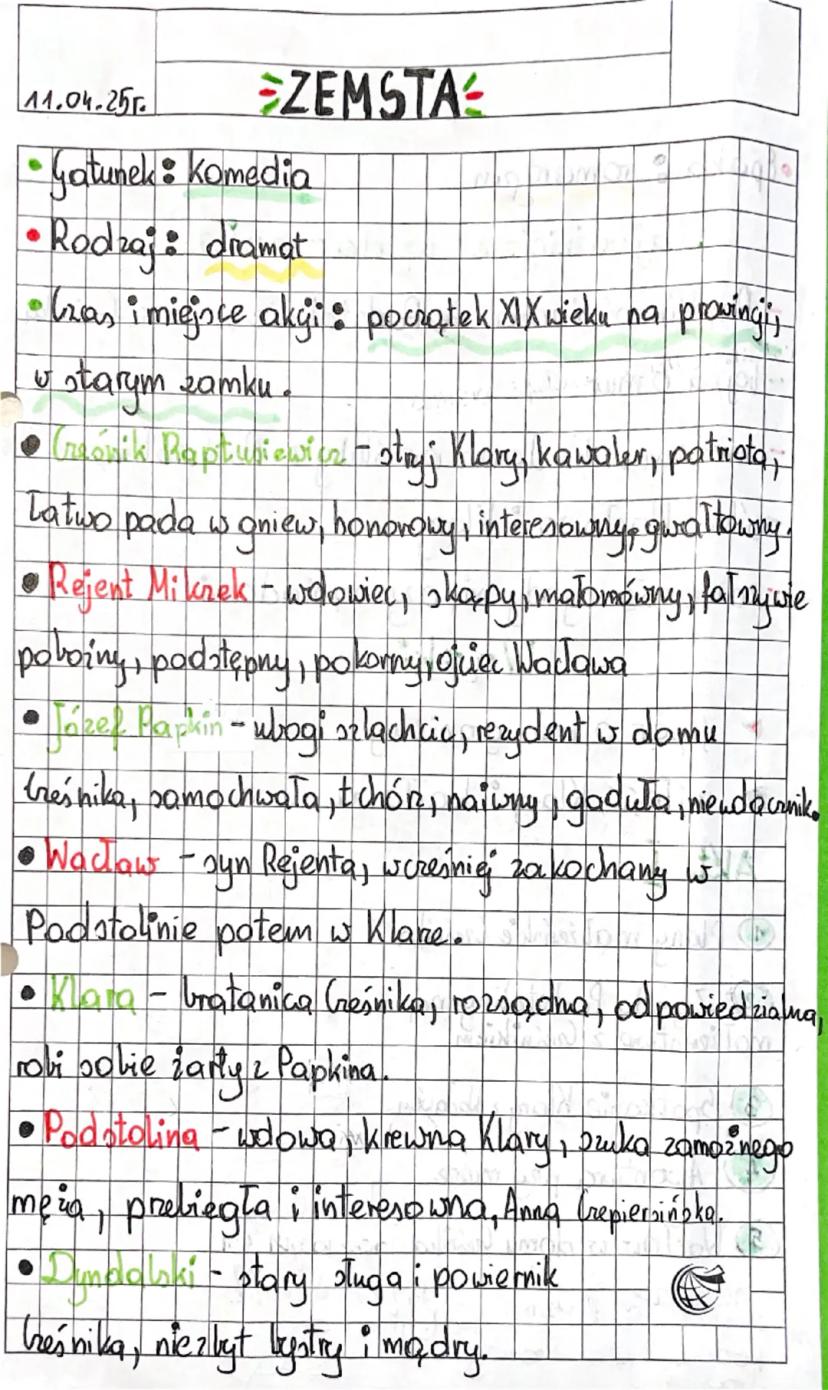 11.04.25r.
ZEMSTA
• Gatunek: komedia
• Rodzaj: dramat
• Czas i miejsce akcji: początek XIX wieku na prowincji,
w starym zamku.
• Cześnik Raptusiewicz - stryj Klary, kawaler, patriota,
łatwo pada w gniew, honorowy, interesowny, gwałtowny.
• Rejent Milczek - wdowiec, skąpy, małomówny, fałszywie
pobożny, podstępny, pokorny, ojciec Wacława
• Józef Papkin - ubogi szlachcic, rezydent w domu
Cześnika, samochwała, tchórz, naiwny, gaduła, nieudacznik.
• Wacław - syn Rejenta, wcześniej zakochany w
Podstolinie potem w Klarze.
• Klara - bratanica Cześnika, rozsądna, odpowiedzialna,
robi sobie żarty z Papkina.
• Podstolina - wdowa, krewna Klary, szuka zamożnego
męża, przebiegła i interesowna, Anna Czepiersińska.
• Dyndalski - stary sługa i powiernik
Cześnika, niezbyt bystry i mądry.